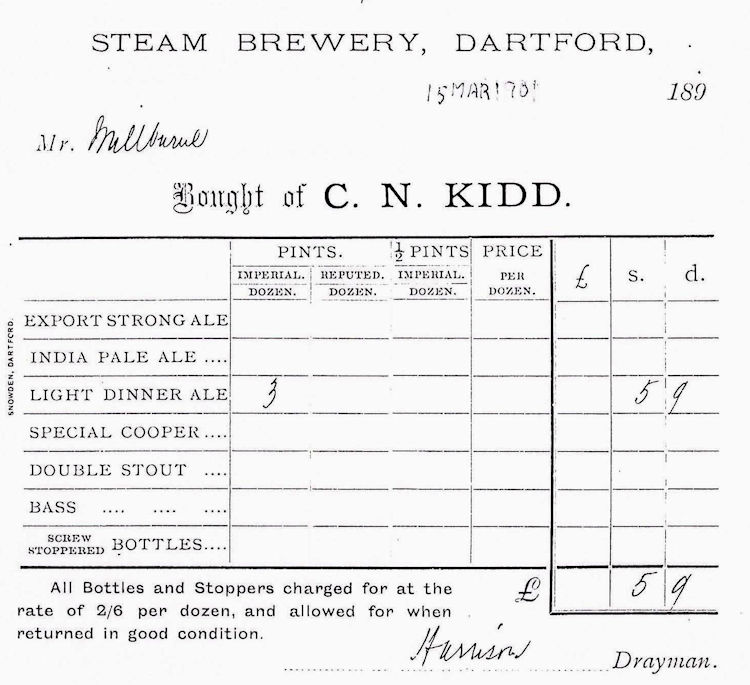 STEAM BREWERY, DARTFORD,
15 MAR 189
Mr. Millburne
Bought of C. N. KIDD.
PINTS. ½ PINTS PRICE
IMPERIAL. REPUTED. IMPERIAL. PER £ s. d.
DOZEN. DOZEN. DOZEN. DOZEN.
EXPORT STRONG ALE
INDIA PALE ALE ....
LIGHT DINNER ALE 3 5 9
SPECIAL COOPER ....
DOUBLE STOUT ....
BASS .... .... ....
SCREW STOPPERED BOTTLES....
SNOWDEN, DARTFORD.
All Bottles and Stoppers charged for at the £ 5 9
rate of 2/6 per dozen, and allowed for when
returned in good condition.
Harrison Drayman.